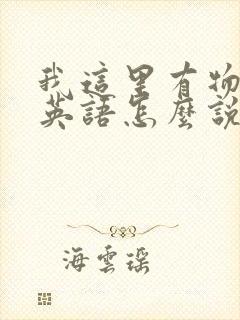 我這里有物
英語怎麼說
海雲瑶